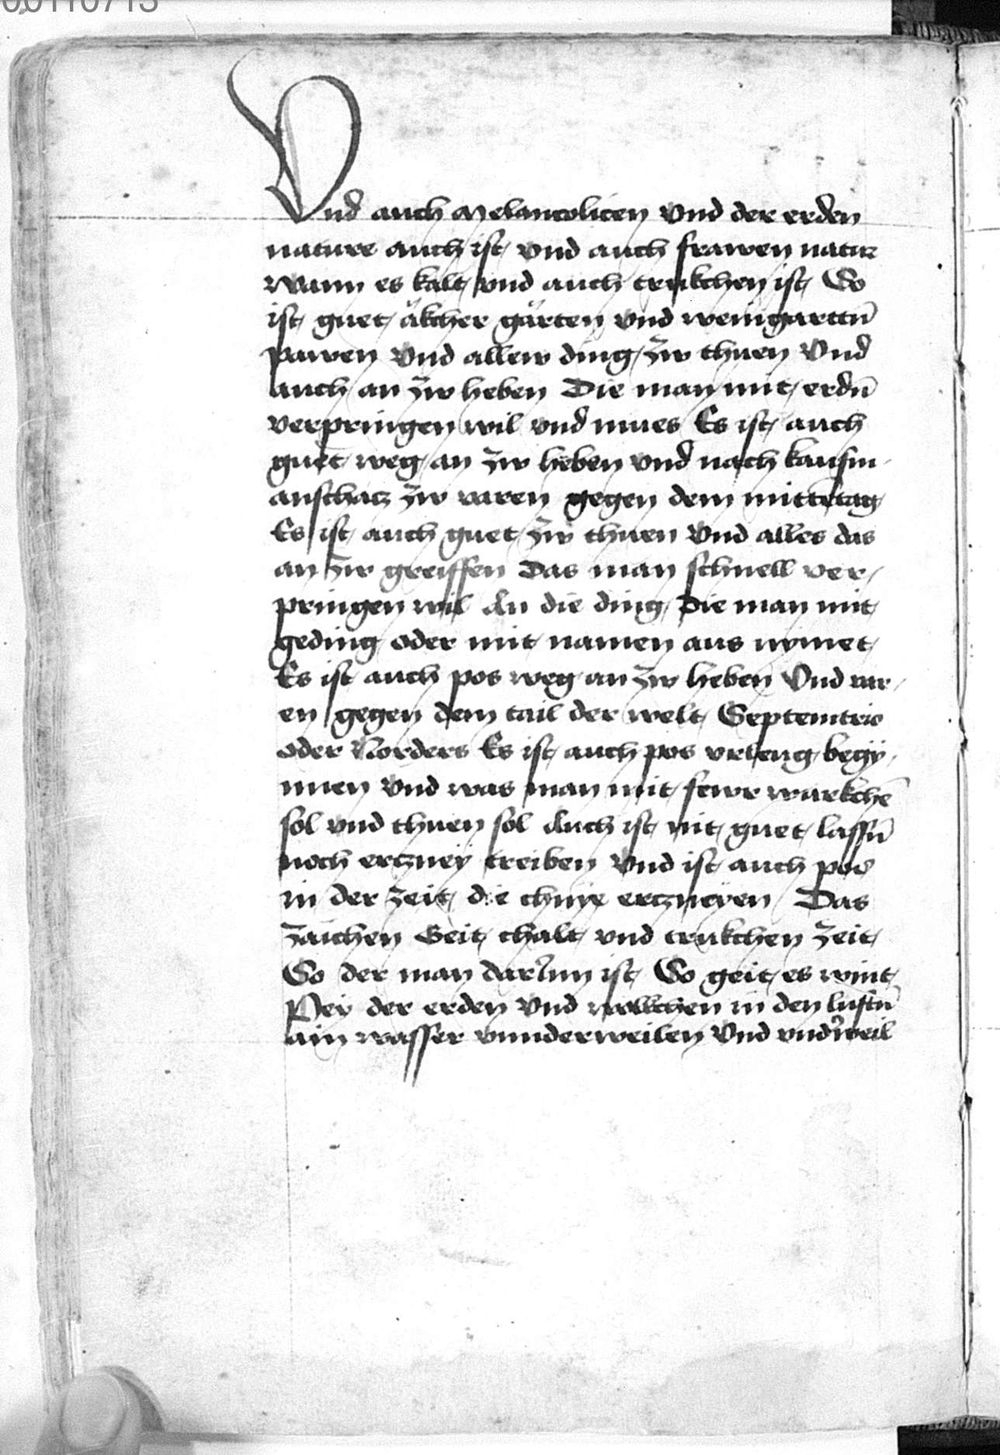 00110713
Vnd auch Melancolicen vnd der erden
nature auch ist vnd auch frawen natur
wann es kalt vnd auch trukchen ist So
ist guet äkcher gärten vnd weingarttn̄
pawen vnd allew ding zw thuen Vnd
auch an zw heben Die man mit erdn̄
verpringen wil vnd mues Es ist auch
guet weg an zw heben vnd nach kaufm
anschacz zw varen gegen dem mittertag
Es ist auch guet zw thuen vnd alles das
an zw greiffen Das man schnell ver
pringen wil An die ding die man mit
geding oder mit namen aus nymet
Es ist auch pos weg an zw heben Vnd var
en gegen dem tail der welt Septemtrio
oder Norders Es ist auch pos vrleug begÿ
nnen vnd was man mit fewr warkchē
sol vnd thuen sol Auch ist nit guet lassn̄
noch ercznej treiben Vnd ist auch pos
in der zeit die chnye ercznëyen Das
zaichen Geit chalt vnd trukchen zeit
So der man darInn ist So geit es wint
Pey der erden vnd wolkchen in den luftn̄
ain wasser vnnderweilen Vnd vnd'weil